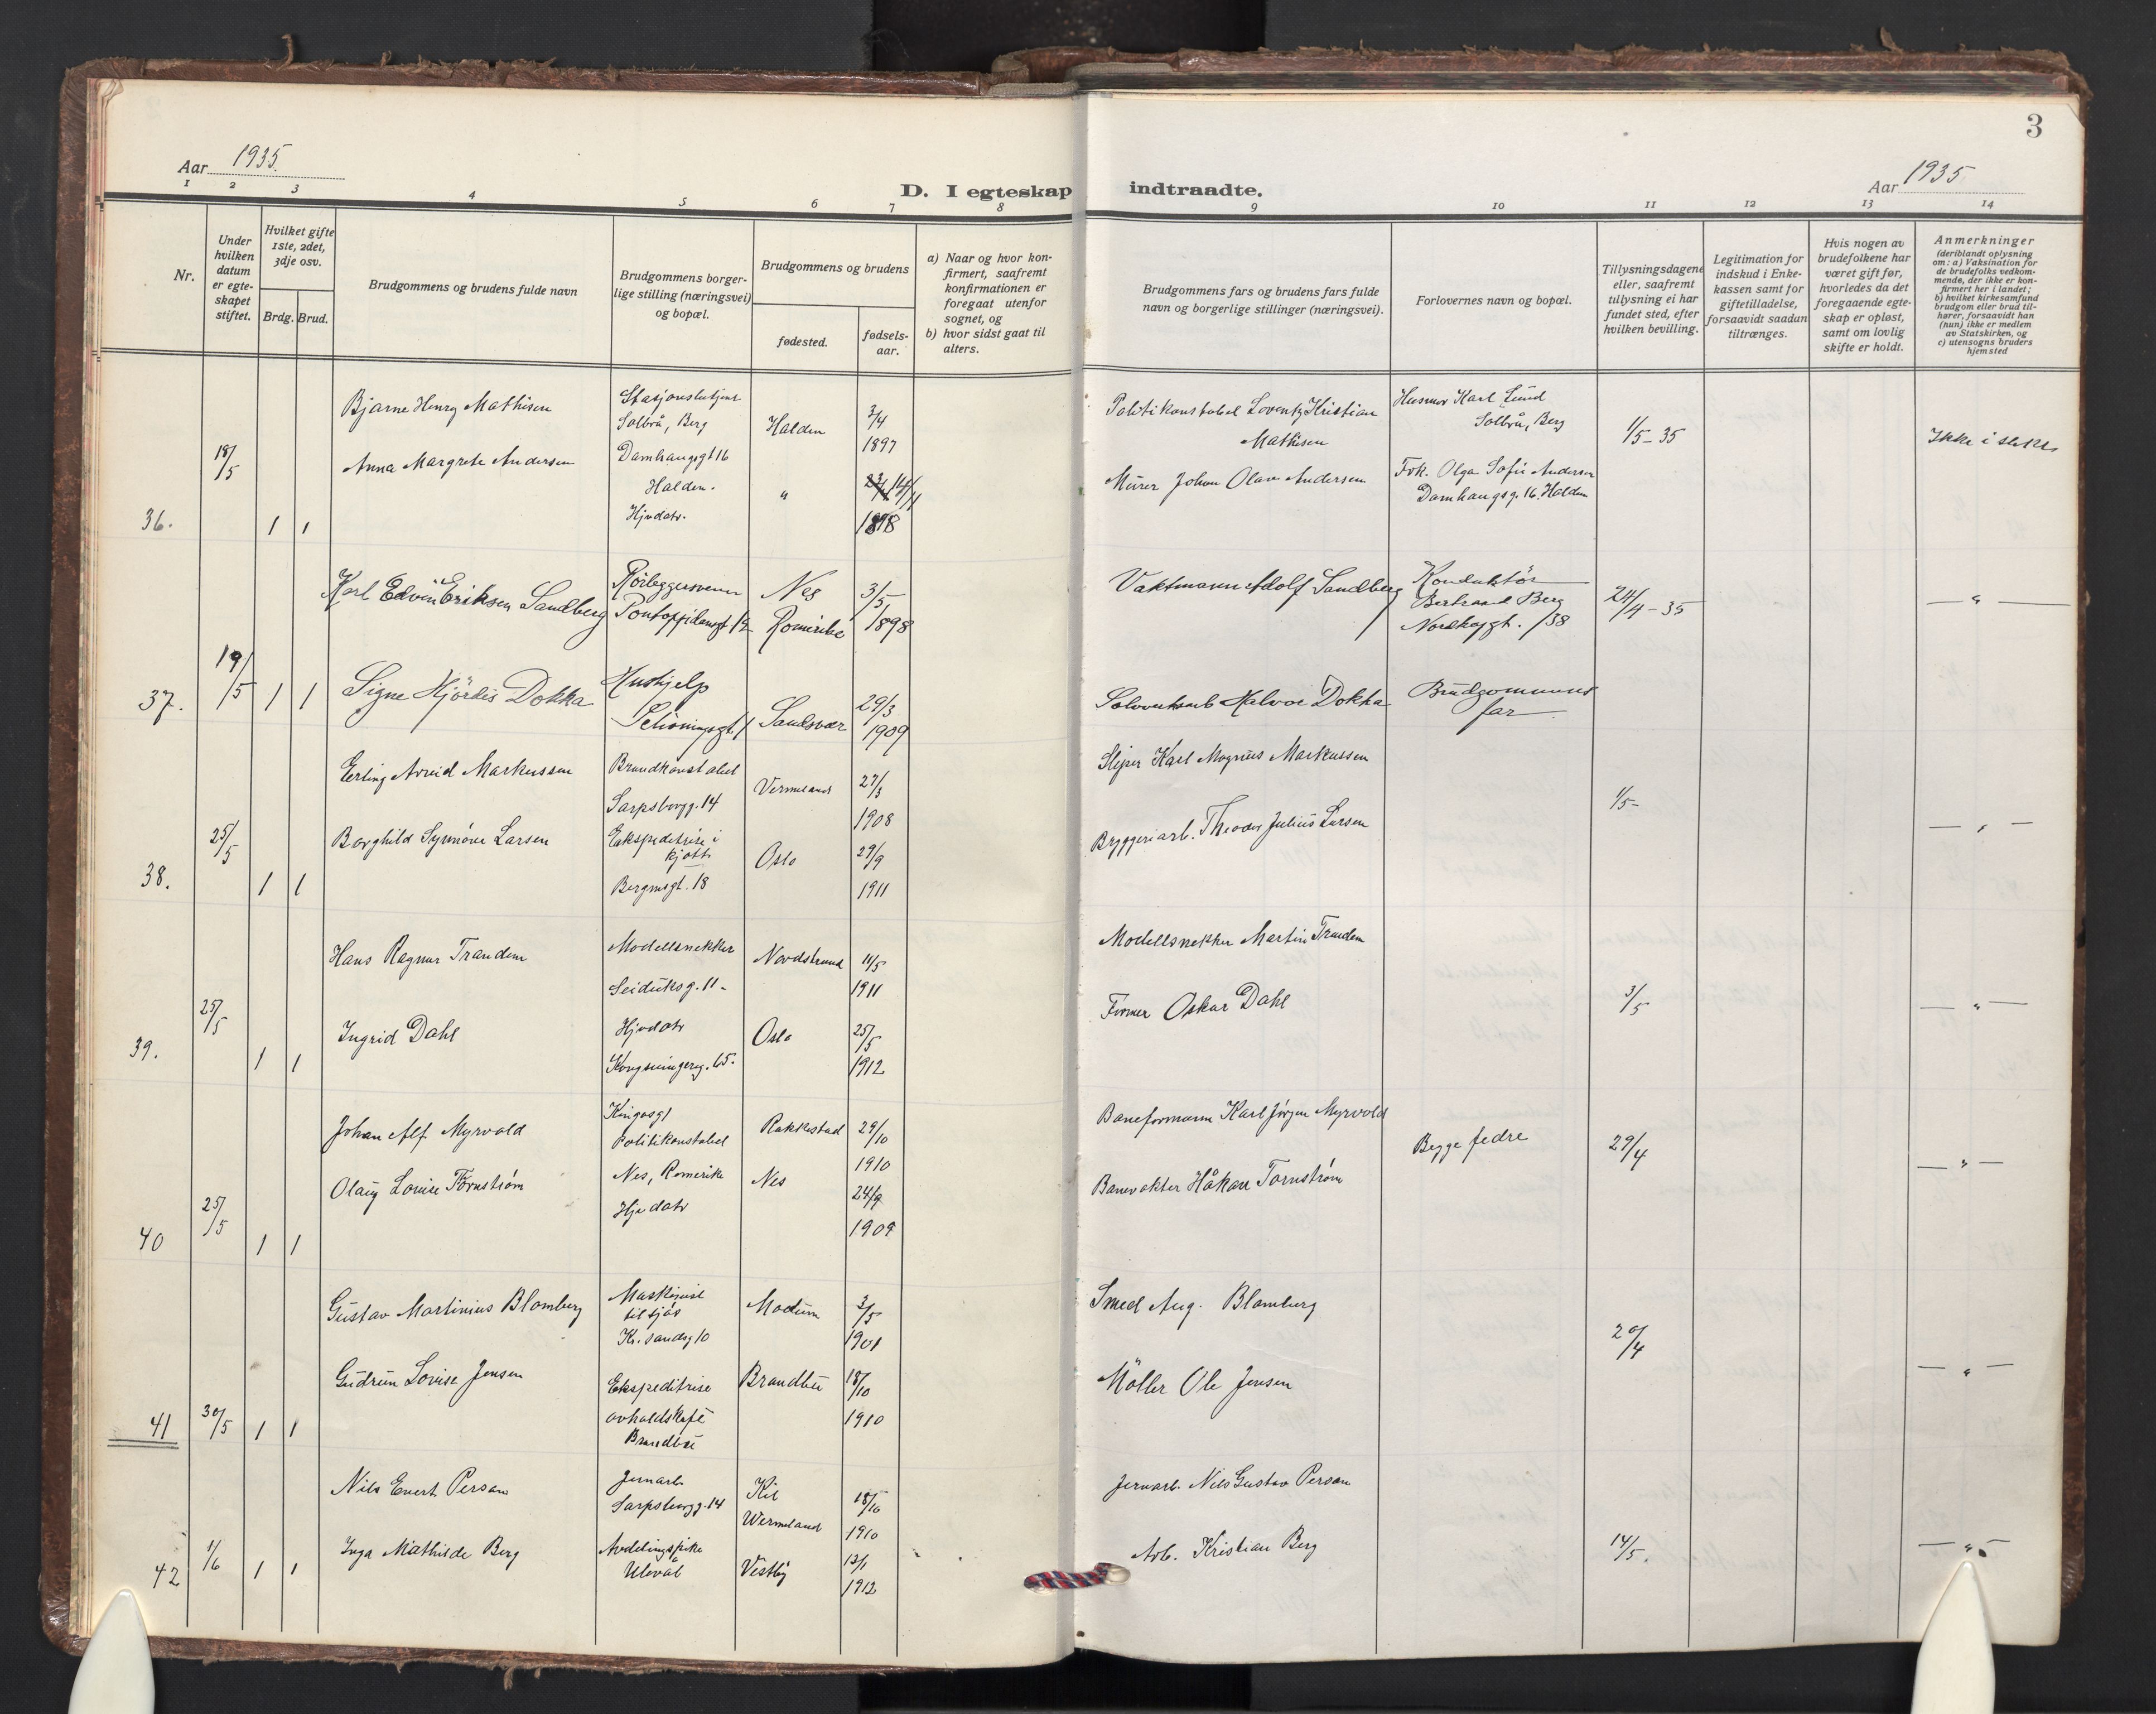 3
Aar 1935.
D. I egteskap indtraadte.
Aar 1935
1 2 3 4 5 6 7 8 9 10 11 12 13 14
Nr.
Under
hvilken
datum
er egte-
skapet
stiftet.
Hvilket gifte
1ste, 2det,
3dje osv.
Brdg. Brud.
Brudgommens og brudens fulde navn
Brudgommens borger-
lige stilling (næringsvei)
og bopæl.
Brudgommens og brudens
fødested.
fødsels-
aar.
a) Naar og hvor kon-
firmert, saafremt
konfirmationen er
foregaat utenfor
sognet, og
b) hvor sidst gaat til
alters.
Brudgommens fars og brudens fars fulde
navn og borgerlige stillinger (næringsvei).
Forlovernes navn og bopæl.
Tillysningsdagene
eller, saafremt
tillysning ei har
fundet sted, efter
hvilken bevilling.
Legitimation for
indskud i Enke-
kassen samt for
giftetilladelse,
forsaavidt saadan
tiltrænges.
Hvis nogen av
brudefolkene har
været gift før,
hvorledes da det
foregaaende egte-
skap er opløst,
samt om lovlig
skifte er holdt.
Anmerkninger
(deriblandt oplysning
om: a) Vaksination for
de brudefolks vedkom-
mende, der ikke er kon-
firmert her i landet;
b) hvilket kirkesamfund
brudgom eller brud til-
hører, forsaavidt han
(hun) ikke er medlem
av Statskirken, og
c) utensogns bruders
hjemsted
36.
18/5
1 1
Bjarne Henry Mathisen
Anna Margrete Andersen
Stasjonsbetjent
Solbrå, Berg
Damhaugsgt 16
Halden.
Hjvdatr.
Halden
"
3/4
1897
14/11
1898
Politikonstabel Lorentz Kristian
Mathisen
Murer Johan Olav Andersen
Husmor Karl Lund
Solbrå, Berg
Frk. Olga Sofie Andersen
Damhaugsg. 16, Halden
1/5 - 35
Ikke i slekt
37.
19/5
1 1
Karl Edvin Eriksen Sandberg
Signe Hjördis Dokka
Rörleggersvenn
Pontoppidansgt 12
Hushjelp
Schöningsgt
Nes
Romerike
Sandsvær
3/5
1898
29/3
1909
Vaktmann Adolf Sandberg
Halvor Dokka
Konduktör
Bertrand Berg
Nordbygt. 38
Brudgommens
far
24/4 - 35
— " —
38.
25/5
1 1
Erling Arvid Markussen
Borghild Synnöve Larsen
Brandkonstabel
Sarpsborgg. 14
Ekspeditrise i
kjött
Bergensgt. 18
Vermeland
Oslo
27/3
1908
29/9
1911
Sliper Karl Magnus Markussen
Bryggeriarb. Theodor Julius Larsen
1/5 -
— " —
39.
25/5
1 1
Hans Ragnar Trandem
Ingrid Dahl
Modellsnekker
Seiduksg. 11 -
Hjvdatr
Kongsvingerg. 15.
Nordstrand
Oslo
11/5
1911
25/5
1912
Modellsnekker Martin Trandem
Former Oskar Dahl
3/5
— " —
40
25/5
1 1
Johan Alf Myrvold
Olaug Louise Törnström
Kingosgt
Politikonstabel
Nes, Romerike
Hjvdatr
Rakkestad
Nes
29/10
1910
24/9
1909
Baneformann Karl Jörgen Myrvold
Banevokter Håkan Törnström
Begge fedre
29/4
— " —
41
30/5
1 1
Gustav Martinius Blomberg
Gudrun Lovise Jensen
Maskinist
til sjös
Kr.sandsg 10
Ekspeditrise
avholdskafé
Brandbu
Modum
Brandbu
3/5
1901
18/10
1910
Smed Aug. Blomberg
Möller Ole Jensen
20/4
— " —
42
1/6
1 1
Nils Evert Person
Inga Mathilde Berg
Jernarb.
Sarpsborgg. 14
Avdelingspike
Ulevål
Kil
Wermeland
Vestby
18/10
1910
13/1
1912
Jernarb. Nils Gustav Person
Arb. Kristian Berg
14/5.
— " —